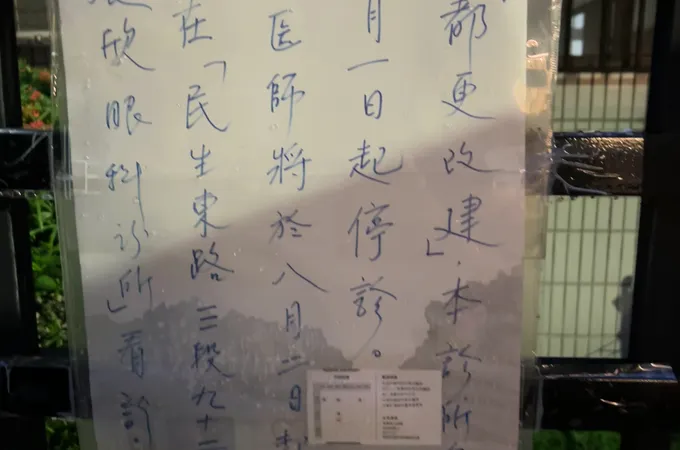 都更改建」，本診所
月一日起停診。
医師將於八月二日
在「民生東路三段九十二
欣眼科診所」看診。